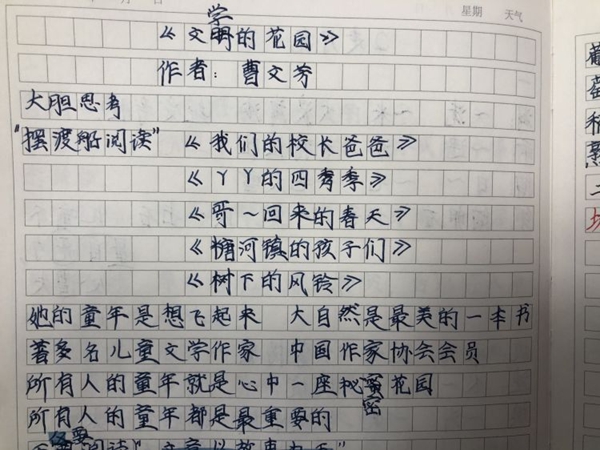 星期 天气
《文学的花园》
作者：曹文芳
大胆思考
"摆渡船阅读" 《我们的校长爸爸》
《丫丫的四季》
《哥一回来的春天》
《糖河镇的孩子们》
《树下的风铃》
她的童年是想飞起来 大自然是最美的一本书
著多名儿童文学作家 中国作家协会会员
所有人的童年就是心中一座秘密花园
所有人的童年都是最重要的